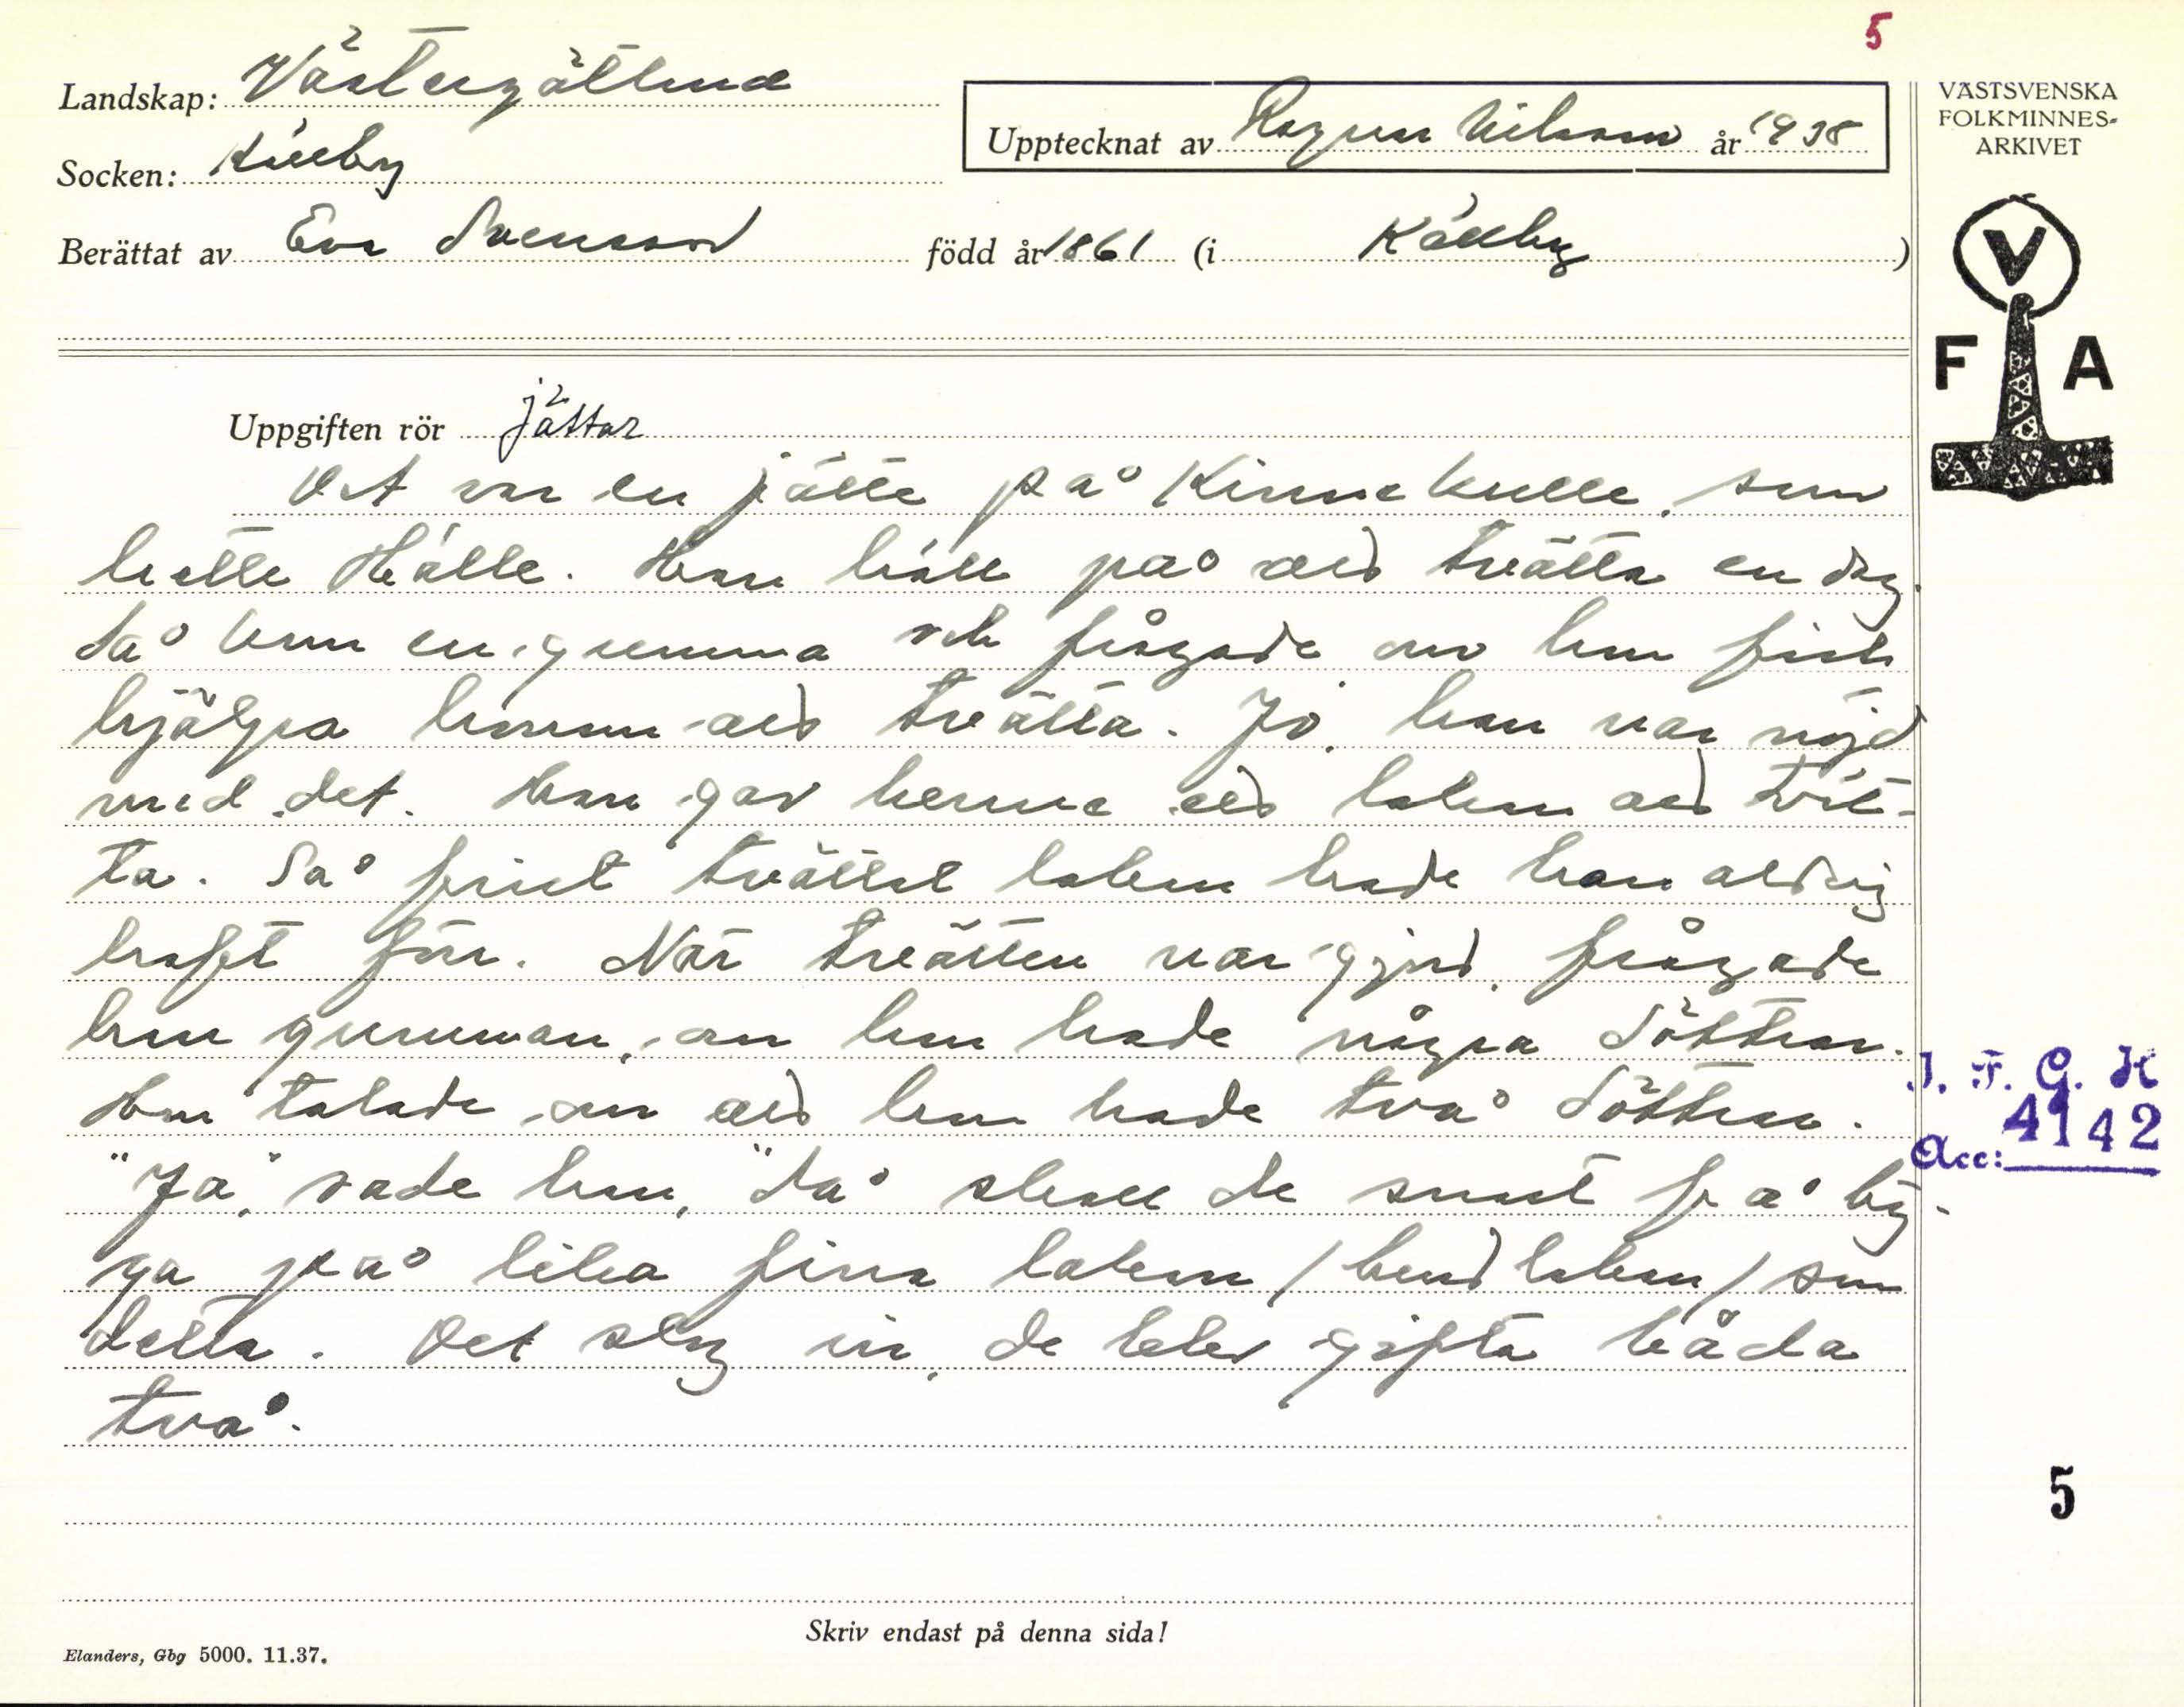 5
Landskap: Västergötland
Upptecknat av Ragnar Nilsson år 1938
VÄSTSVENSKA
FOLKMINNES-
ARKIVET
Socken: Källby
Berättat av Eva Svensson född år 1861 (i Källby)
V
F A
Uppgiften rör jättar
Det var en jätte på Kinnekulle, som
hette Hälle. Han höll på att tvätta en dag.
Så kom en gumma och frågade om hon fick
hjälpa honom att tvätta. Jo, han var nöjd
med det. Han gav henne ett lakan att tvät-
ta. Så fint tvättat lakan hade han aldrig
haft förr. När tvätten var gjord, frågade
han gumman, om hon hade några döttrar.
Hon talade om att hon hade två döttrar.
"Ja", sade han, "då skall de snart få lig-
ga på lika fina lakan /brudlakan/ som
detta. Det slog in, de blev gifta båda
två.
I. F. G. H
Acc: 4142
5
Skriv endast på denna sida!
Elanders, Gbg 5000. 11.37.